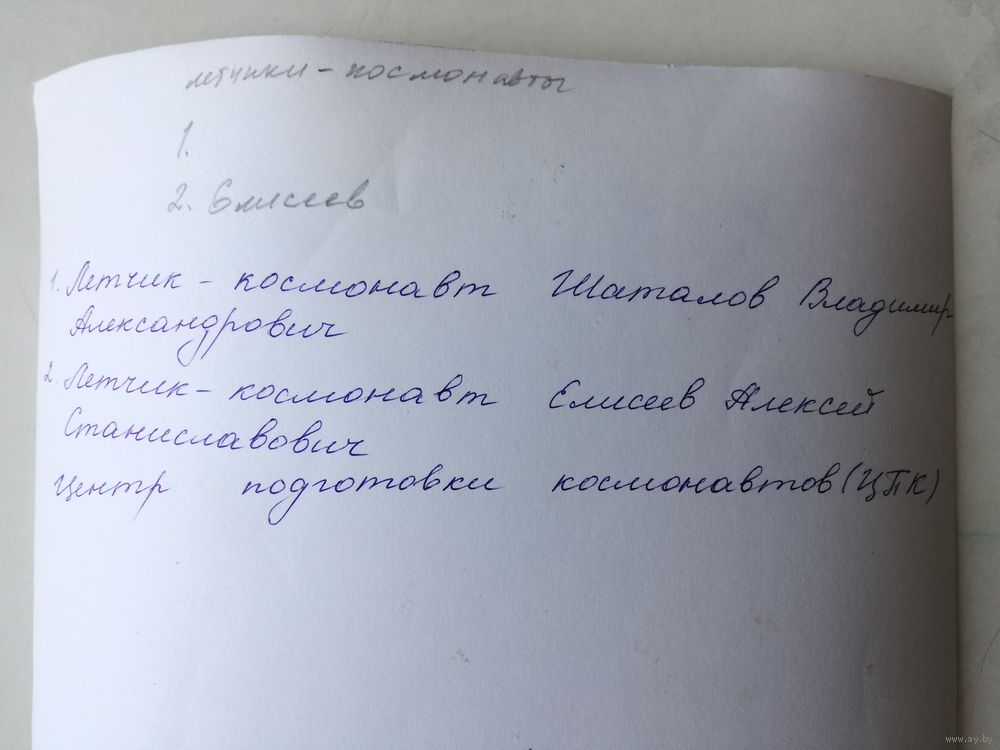 летчики - космонавты
1.
2. Елисеев
1. Летчик - космонавт Шаталов Владимир
Александрович
2. Летчик - космонавт Елисеев Алексей
Станиславович
Центр подготовки космонавтов (ЦПК)
www.ay.by